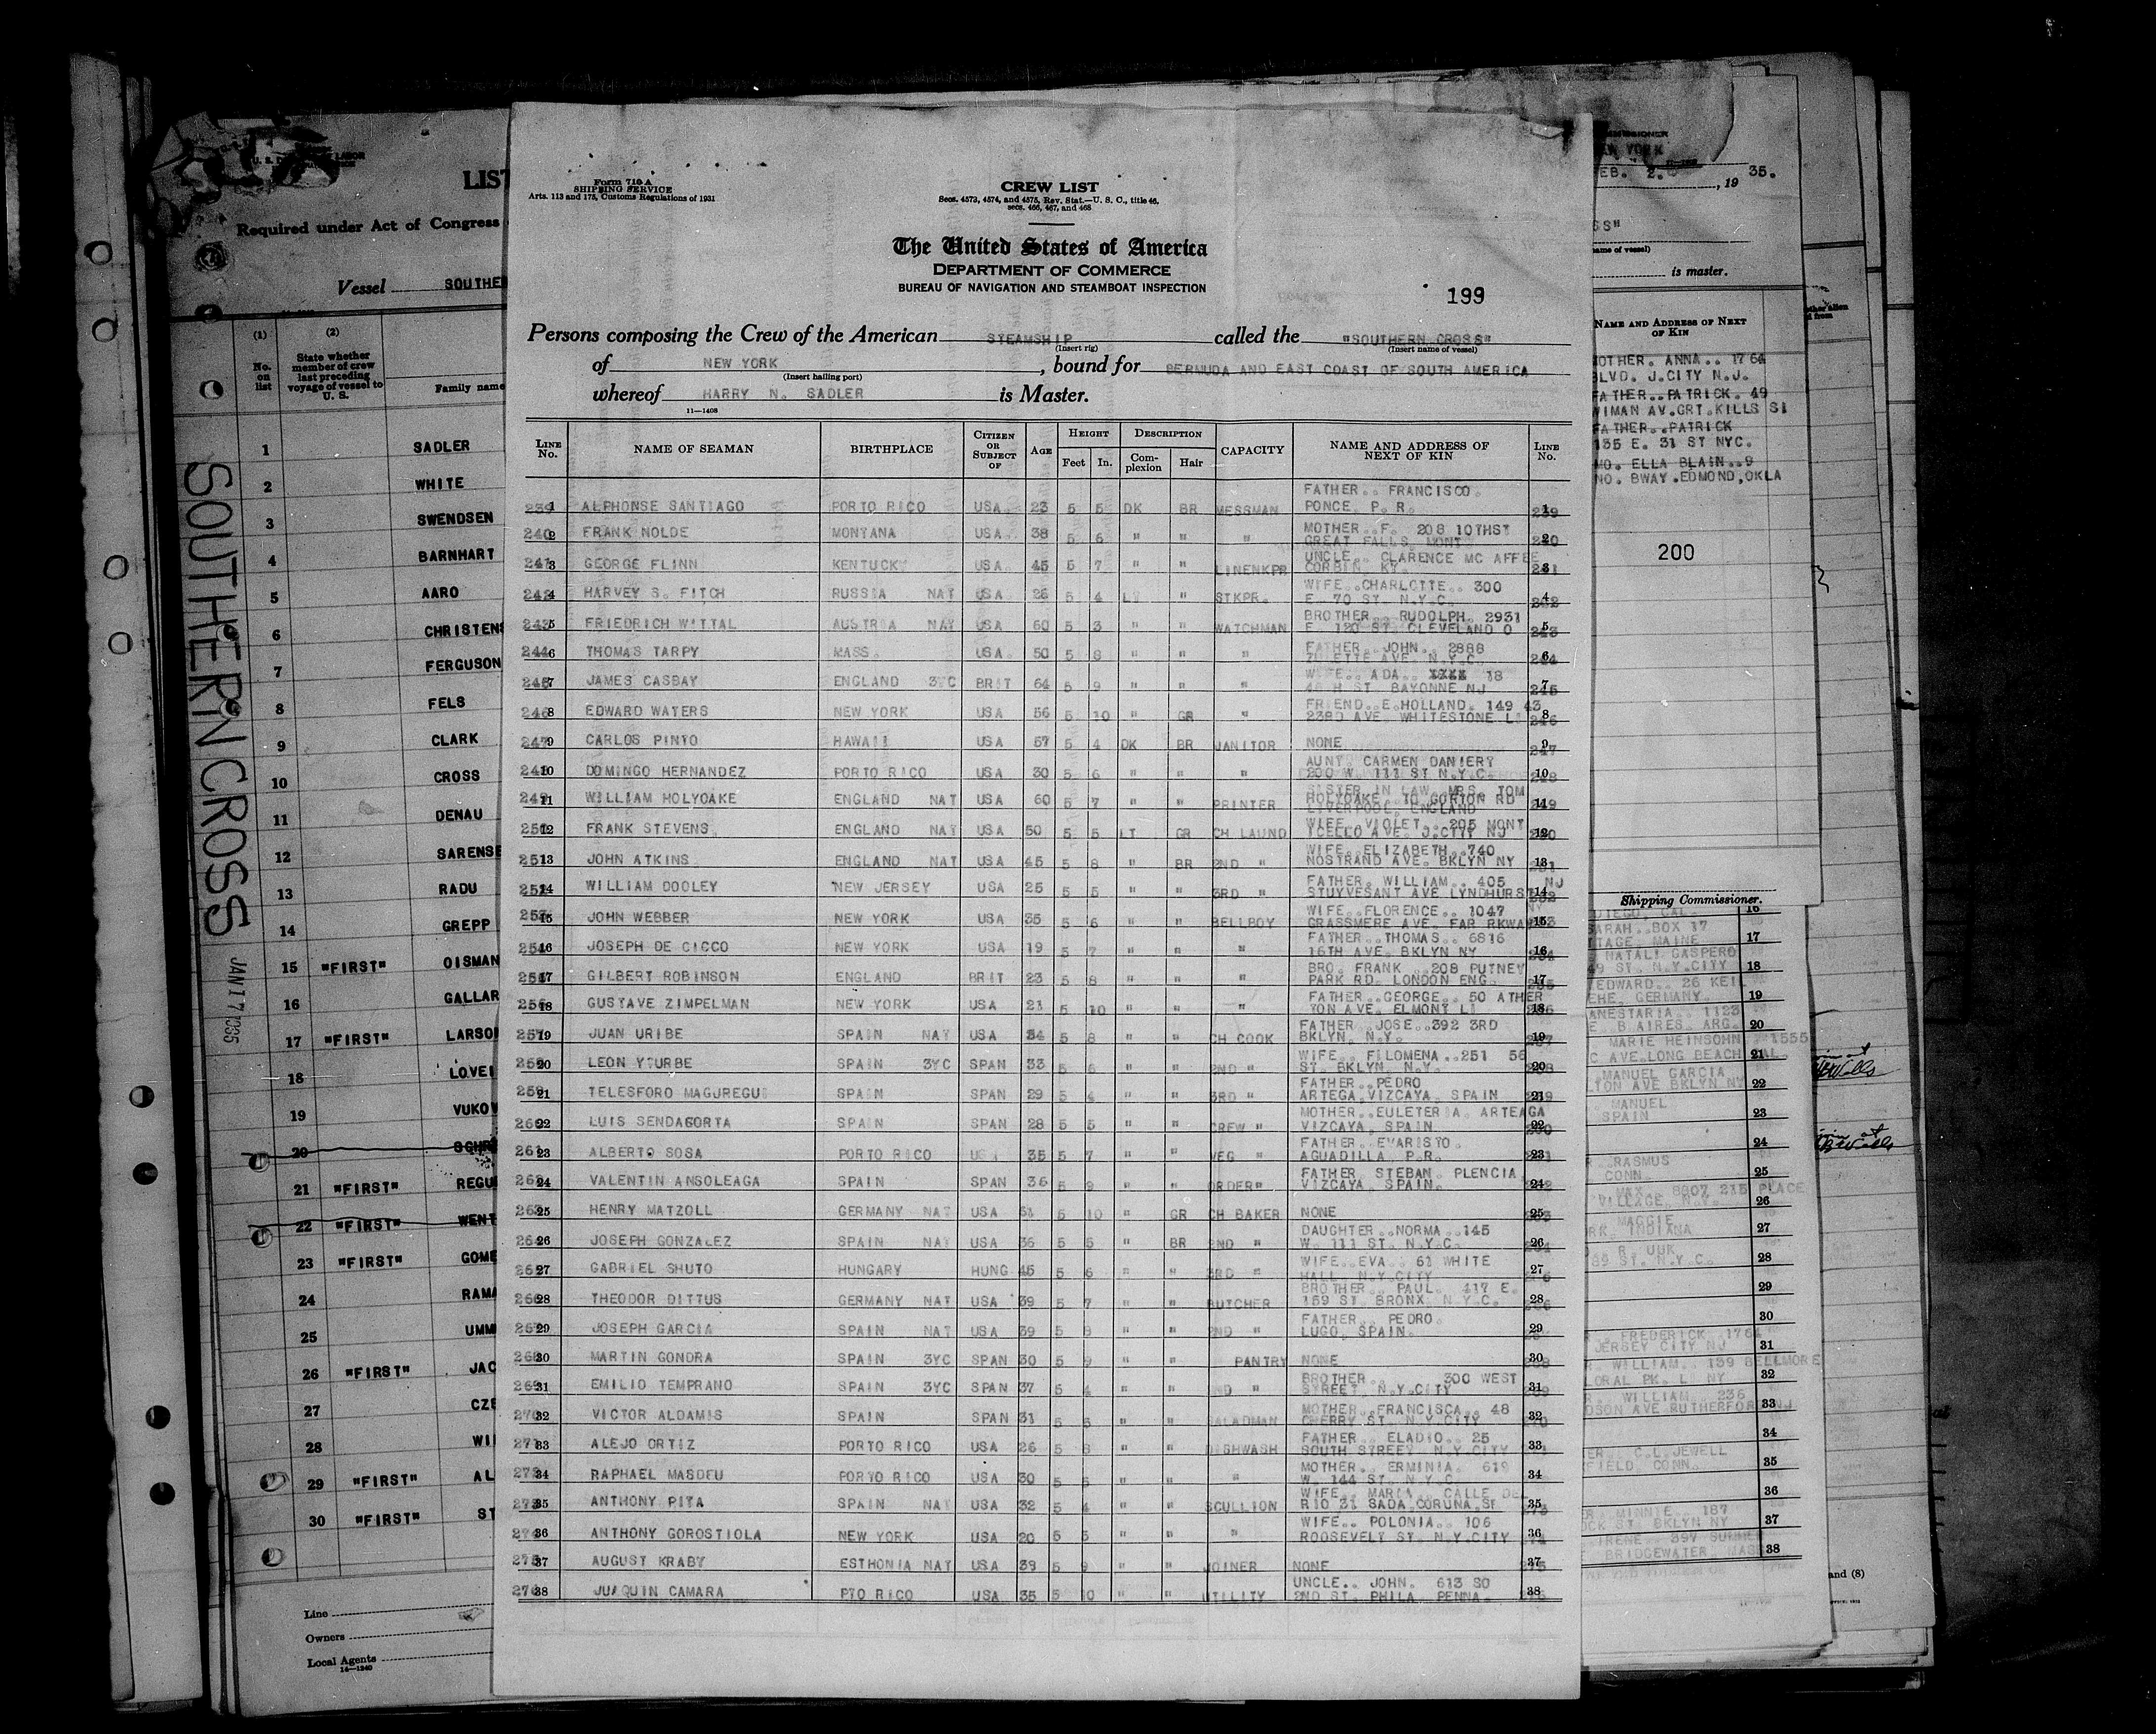 Form 710 A
SHIPPING SERVICE
Arts. 113 and 175, Customs Regulations of 1931
CREW LIST
Secs. 4573, 4574, and 4575, Rev. Stat.—U. S. C., title 46,
secs. 466, 467, and 468
The United States of America
DEPARTMENT OF COMMERCE
BUREAU OF NAVIGATION AND STEAMBOAT INSPECTION
199
Persons composing the Crew of the American STEAMSHIP called the "SOUTHERN CROSS"
(Insert rig) (Insert name of vessel)
of NEW YORK, bound for BERMUDA AND EAST COAST OF SOUTH AMERICA
(Insert hailing port)
whereof HARRY N. SADLER is Master.
11—1408
LINE No. NAME OF SEAMAN BIRTHPLACE CITIZEN OR SUBJECT OF AGE HEIGHT Feet In. DESCRIPTION Complexion Hair CAPACITY NAME AND ADDRESS OF NEXT OF KIN LINE No.
1 ALPHONSE SANTIAGO PORTO RICO USA 23 5 5 DK BR MESSMAN FATHER.. FRANCISCO. PONCE. P. R. 1
2 FRANK NOLDE MONTANA USA 38 5 6 " " " MOTHER..F. 208 10THST GREAT FALLS MONT 2
3 GEORGE FLINN KENTUCKY USA 45 5 7 " " LINENKPR UNCLE.. CLARENCE MC AFFEE CORBIN. KY. 3
4 HARVEY S. FITCH RUSSIA NAT USA 26 5 4 LT " STKPR. WIFE..CHARLOTTE.. 300 E. 70 ST. N.Y.C. 4
5 FRIEDRICH WITTAL AUSTRIA NAT USA 60 5 3 " " WATCHMAN BROTHER.. RUDOLPH. 2931 E. 120 ST. CLEVELAND O 5
6 THOMAS TARPY MASS. USA 50 5 8 " " " FATHER..JOHN.. 2888 ZULETTE AVE. N.Y.C. 6
7 JAMES CASBAY ENGLAND 3YC BRIT 64 5 9 " " " WIFE.. ADA.. 18 45 H ST. BAYONNE NJ 7
8 EDWARD WATERS NEW YORK USA 56 5 10 " GR " FRIEND..E.HOLLAND. 149 43 23RD AVE. WHITESTONE LI 8
9 CARLOS PINTO HAWAII USA 57 5 4 DK BR JANITOR NONE 9
10 DOMINGO HERNANDEZ PORTO RICO USA 30 5 6 " " " AUNT. CARMEN DANIERY 200 W. 111 ST N.Y.C. 10
11 WILLIAM HOLYOAKE ENGLAND NAT USA 60 5 7 " " PRINTER SISTER IN LAW..MRS. TOM HOLYOAKE.. 10 GORTON RD LIVERPOOL. ENGLAND 11
12 FRANK STEVENS ENGLAND NAT USA 50 5 5 LT GR CH LAUND WIFE. VIOLET.. 205 MONT ICELLO AVE. J.CITY NJ 12
13 JOHN ATKINS ENGLAND NAT USA 45 5 8 " BR 2ND " WIFE..ELIZABETH..740 NOSTRAND AVE. BKLYN NY 13
14 WILLIAM DOOLEY NEW JERSEY USA 25 5 5 " " 3RD " FATHER. WILLIAM.. 405 STUYVESANT AVE LYNDHURST NJ 14
15 JOHN WEBBER NEW YORK USA 35 5 6 " " BELLBOY WIFE..FLORENCE.. 1047 GRASSMERE AVE. FAR RKWAY 15
16 JOSEPH DE CICCO NEW YORK USA 19 5 7 " " " FATHER..THOMAS.. 6816 16TH AVE. BKLYN NY 16
17 GILBERT ROBINSON ENGLAND BRIT 23 5 8 " " " BRO. FRANK ..208 PUTNEY PARK RD. LONDON ENG. 17
18 GUSTAVE ZIMPELMAN NEW YORK USA 21 5 10 " " " FATHER..GEORGE.. 50 ATHER TON AVE. ELMONT LI 18
19 JUAN URIBE SPAIN NAT USA 34 5 8 " " CH COOK FATHER.. JOSE..392 3RD BKLYN. N.Y. 19
20 LEON YTURBE SPAIN 3YC SPAN 33 5 6 " " 2ND " WIFE.. FILOMENA..251 56 ST. BKLYN. N.Y. 20
21 TELESFORO MAGUREGUI SPAIN SPAN 29 5 4 " " 3RD " FATHER..PEDRO ARTEGA.VIZCAYA. SPAIN 21
22 LUIS SENDAGORTA SPAIN SPAN 28 5 5 " " CREW " MOTHER..EULETERIA. ARTEAGA VIZCAYA. SPAIN 22
23 ALBERTO SOSA PORTO RICO USA 35 5 7 " " VEG " FATHER.. EVARISTO. AGUADILLA. P.R. 23
24 VALENTIN ANSOLEAGA SPAIN SPAN 36 5 9 " " ORDER" FATHER. STEBAN. PLENCIA VIZCAYA. SPAIN. 24
25 HENRY MATZOLL GERMANY NAT USA 61 5 10 " GR CH BAKER NONE 25
26 JOSEPH GONZALEZ SPAIN NAT USA 36 5 5 " BR 2ND " DAUGHTER..NORMA..145 W. 111 ST. N.Y.C. 26
27 GABRIEL SHUTO HUNGARY HUNG 45 5 6 " " 3RD " WIFE..EVA.. 61 WHITE HALL N.Y.CITY 27
28 THEODOR DITTUS GERMANY NAT USA 39 5 7 " " BUTCHER BROTHER.. PAUL. 417 E. 159 ST. BRONX. N.Y.C. 28
29 JOSEPH GARCIA SPAIN NAT USA 39 5 8 " " 2ND " FATHER.. PEDRO. LUGO. SPAIN. 29
30 MARTIN GONDRA SPAIN 3YC SPAN 30 5 9 " " PANTRY NONE 30
31 EMILIO TEMPRANO SPAIN 3YC SPAN 37 5 4 " " 2ND " BROTHER.. 300 WEST STREET. N.Y.CITY 31
32 VICTOR ALDAMIS SPAIN SPAN 31 5 5 " " SALADMAN MOTHER..FRANCISCA.. 48 CHERRY ST. N.Y.CITY 32
33 ALEJO ORTIZ PORTO RICO USA 26 5 8 " " DISHWASH FATHER.. ELADIO.. 25 SOUTH STREET N.Y.CITY 33
34 RAPHAEL MASDEU PORTO RICO USA 30 5 5 " " " MOTHER.. ERMINIA. 619 W. 144 ST. N.Y.C. 34
35 ANTHONY PITA SPAIN NAT USA 32 5 4 " " SCULLION WIFE.. MARIA.. CALLE DEL RIO 31 SADA.CORUNA.SP 35
36 ANTHONY GOROSTIOLA NEW YORK USA 20 5 3 " " " WIFE.. POLONIA.. 106 ROOSEVELT ST. N.Y.CITY 36
37 AUGUST KRABY ESTHONIA NAT USA 39 5 9 " " JOINER NONE 37
38 JUAQUIN CAMARA PTO RICO USA 35 5 10 " " UTILITY UNCLE.. JOHN. 613 SO 2ND ST. PHILA PENNA. 38
LIST
Required under Act of Congress
Vessel SOUTHE
(1) No. on list
(2) State whether member of crew last preceding voyage of vessel to U. S.
Family name
1 SADLER
2 WHITE
3 SWENDSEN
4 BARNHART
5 AARO
6 CHRISTENS
7 FERGUSON
8 FELS
9 CLARK
10 CROSS
11 DENAU
12 SARENSE
13 RADU
14 GREPP
15 "FIRST" OISMAN
16 GALLAR
17 "FIRST" LARSON
18 LOVEI
19 VUKOV
20
21 "FIRST" REGU
22 "FIRST" WENT
23 "FIRST" GOME
24 RAMA
25 UMM
26 "FIRST" JAC
27 CZE
28 WI
29 "FIRST" AL
30 "FIRST" ST
Line
Owners
Local Agents
14—1240
SOUTHERN CROSS JAN 17 1935
NEW YORK
FEB. 2. , 19 35.
SS"
name of vessel)
is master.
NAME AND ADDRESS OF NEXT OF KIN
MOTHER. ANNA.. 1764
BLVD. J.CITY N.J.
FATHER..PATRICK. 49
WIMAN AV.GRT.KILLS SI
FATHER..PATRICK
135 E. 31 ST NYC.
MO. ELLA BLAIN..9
NO. BWAY.EDMOND,OKLA
200
Shipping Commissioner.
DIEGO. CAL. 16
SARAH..BOX 17
TTAGE. MAINE 17
NATALI GASPERO
49 ST. N.Y.CITY 18
EDWARD.. 26 KEIL
EHE. GERMANY. 19
ANESTARIA.. 1123
E. B.AIRES. ARG. 20
MARIE HEINSOHN 1555
C AVE.LONG BEACH CAL. 21
MANUEL GARCIA
TON AVE BKLYN NY 22
MANUEL
SPAIN 23
24
RASMUS
CONN. 25
MAX. 8807 215 PLACE
VILLAGE. N.Y. 26
MAGGIE
RK. INDIANA 27
R. UUK
39 ST. N.Y.C. 28
29
30
FREDERICK 1764
JERSEY CITY NJ 31
WILLIAM.. 139 BELLMORE
LORAL PK. L. NY 32
WILLIAM. 236
DSON AVE RUTHERFORD NJ 33
34
C.L.JEWELL
FIELD. CONN. 35
36
MINNIE.. 187
OCK ST. BKLYN NY 37
IRENE.. 397 SUMMER
BRIDGEWATER. MASS 38
and (8)